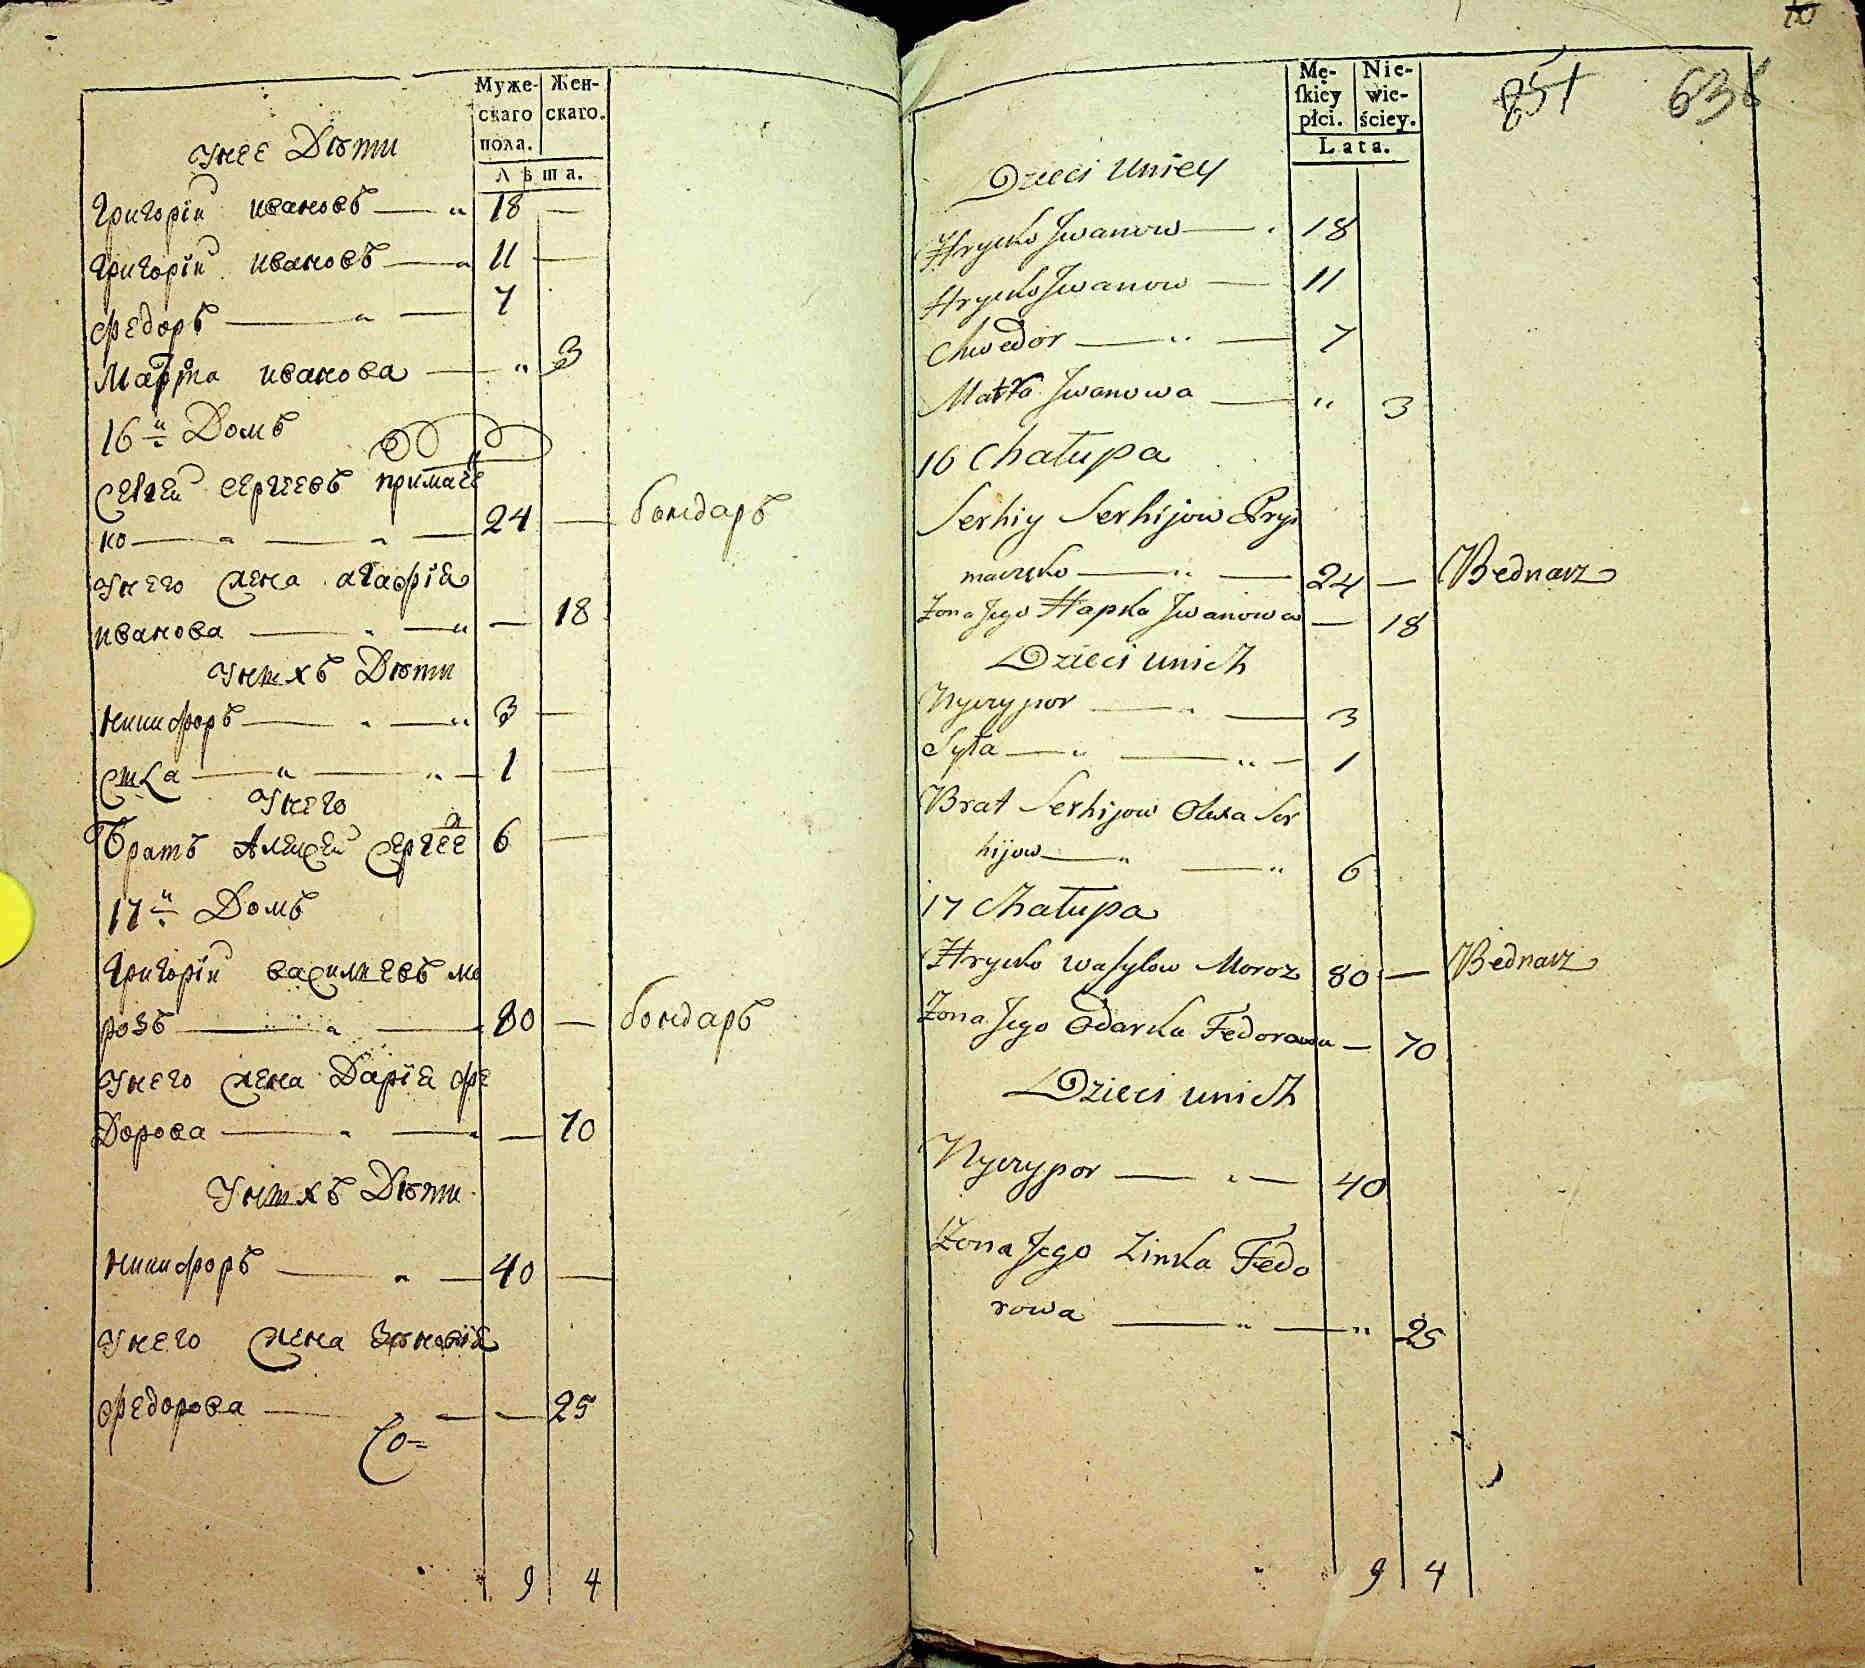 Муже-
скаго
пола.
Жен-
скаго.
Лѣта.
Унее Дѣти
Григорiй ивановъ — " 18 —
Григорiй ивановъ — " 11 —
Федоръ — " — 7
Марѳа иванова — " 3
16й Домъ
Сергей сергеевъ примаче
ко — " — " — 24 — бондарь
Унего жена агафiя
иванова — " — " — 18
Унихъ Дѣти
Никифоръ — " — " 3 —
— " — " — 1 —
Унего
Братъ Алексей Сергее 6 —
17й Домъ
Григорiй василиевъ мо
розъ — " — 80 — бондарь
Унего жена Дарiя фе
дорова — " — " — 70
Унихъ Дѣти
Никифоръ — " — 40 —
Унего жена Зѣновiя
Федорова — " — — 25
Со=
9 4
10
851 636
Mę-
ſkiey
płci.
Nie-
wie-
ściey.
Lata.
Dzieci Uniey
Hrycko Jwanow — . 18
Hrycko Jwanow — 11
Chwedor — " — 7
Jwanowa — " 3
16 Chałupa
Serhiy Serhijow Pry
maczęko — " — 24 — Bednarz
Zona Jego Hapka Jwanowa — 18
Dzieci unich
Nyczypor — " — 3
Syła — " — " — 1
Brat Serhijow Olexa Ser
hijow — " — " 6
17 Chałupa
Hrycko Wasylow Moroz 80 — Bednarz
Zona Jego Odarka Fedorowa — 70
Dzieci unich
Nyczypor — " — 40
Zona Jego Zinka Fedo
rowa — " — " 25
9 4